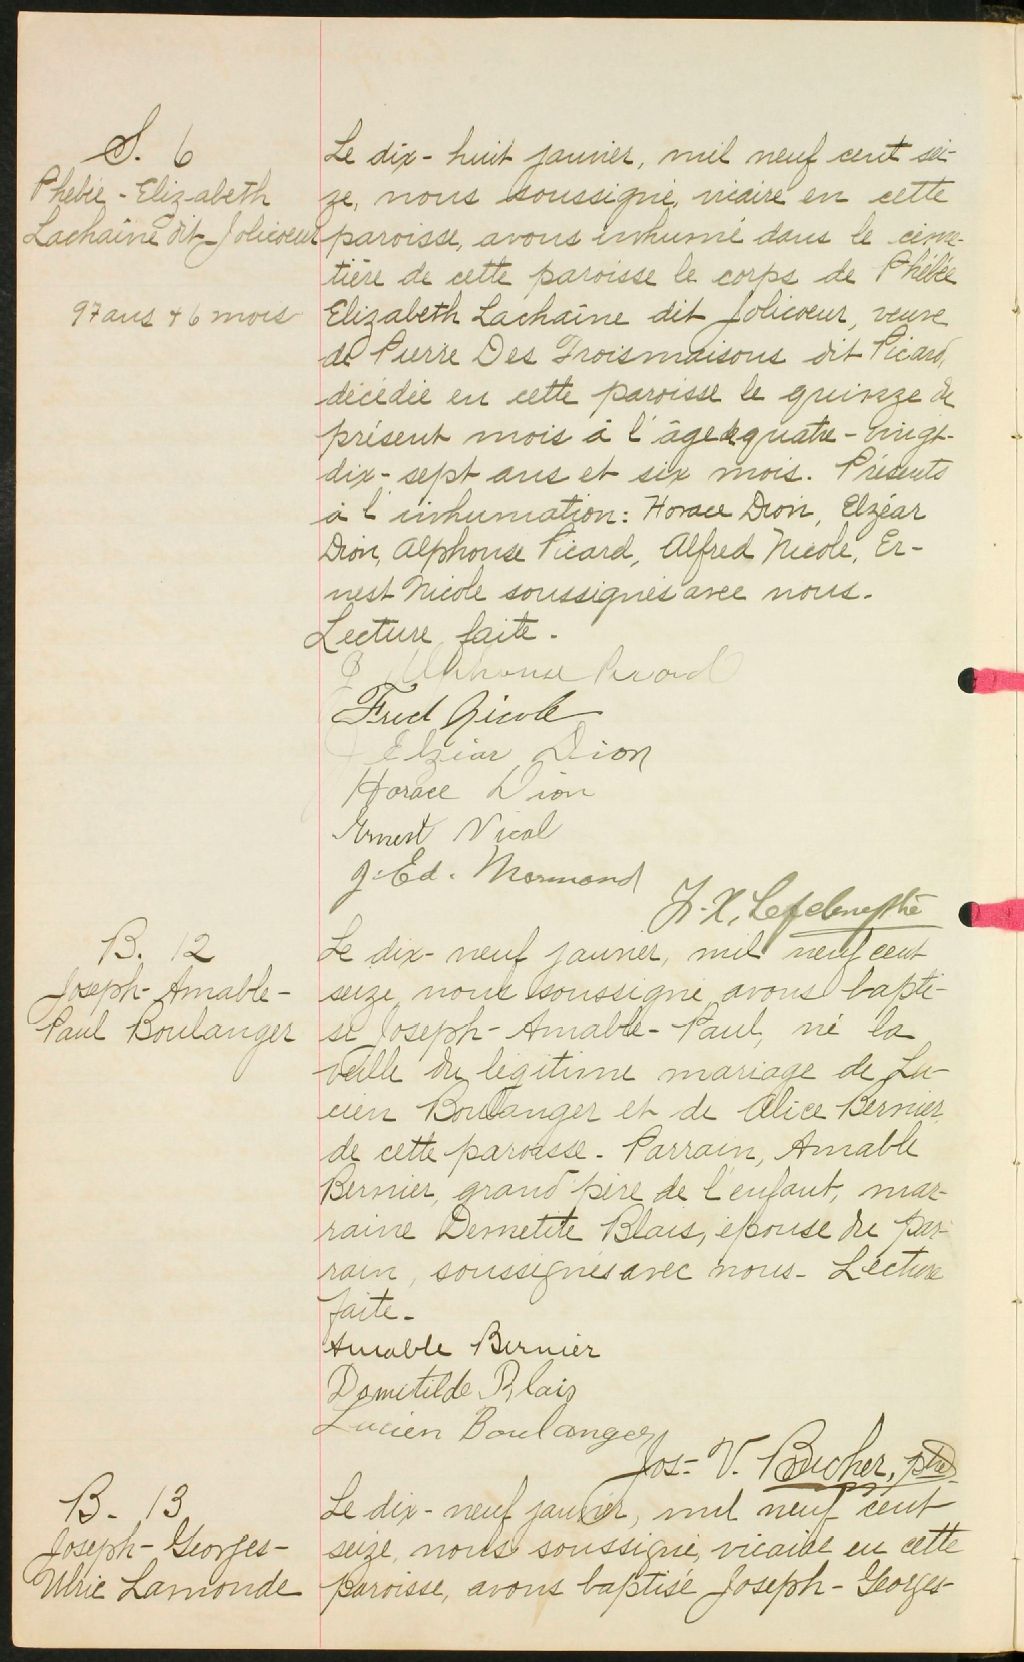 S. 6
Phébée-Elizabeth
Lachaîne dit Jolicoeur
97 ans + 6 mois
Le dix-huit janvier, mil neuf cent sei-
ze, nous soussigné, vicaire en cette
paroisse, avons inhumé dans le cime-
tière de cette paroisse le corps de Phébée
Elizabeth Lachaîne dit Jolicoeur, veuve
de Pierre Des Troismaisons dit Picard,
décédée en cette paroisse le quinze du
présent mois à l'âge de quatre-vingt-
dix-sept ans et six mois. Présents
à l'inhumation: Horace Dion, Elzéar
Dion, Alphonse Picard, Alfred Nicole, Er-
nest Nicole soussignés avec nous.
Lecture faite.
Alphonse Picard
Fred Nicole
Elzear Dion
Horace Dion
Ernest Nicol
J. Ed. Normand
F.-X. Lefebvre ptre
B. 12
Joseph-Amable-
Paul Boulanger
Le dix-neuf janvier, mil neuf cent
seize, nous soussigné, avons bapti-
sé Joseph-Amable-Paul, né la
veille du légitime mariage de Lu-
cien Boulanger et de Alice Bernier,
de cette paroisse. Parrain, Amable
Bernier, grand'père de l'enfant, mar-
raine Demetite Blais, épouse du par-
rain, soussignés avec nous. Lecture
faite.
Amable Bernier
Dometilde Blais
Lucien Boulanger
Jos.-V. Boucher, ptre
B. 13
Joseph-Georges-
Ulric Lamonde
Le dix-neuf janvier, mil neuf cent
seize, nous soussigné, vicaire en cette
paroisse, avons baptisé Joseph-Georges-